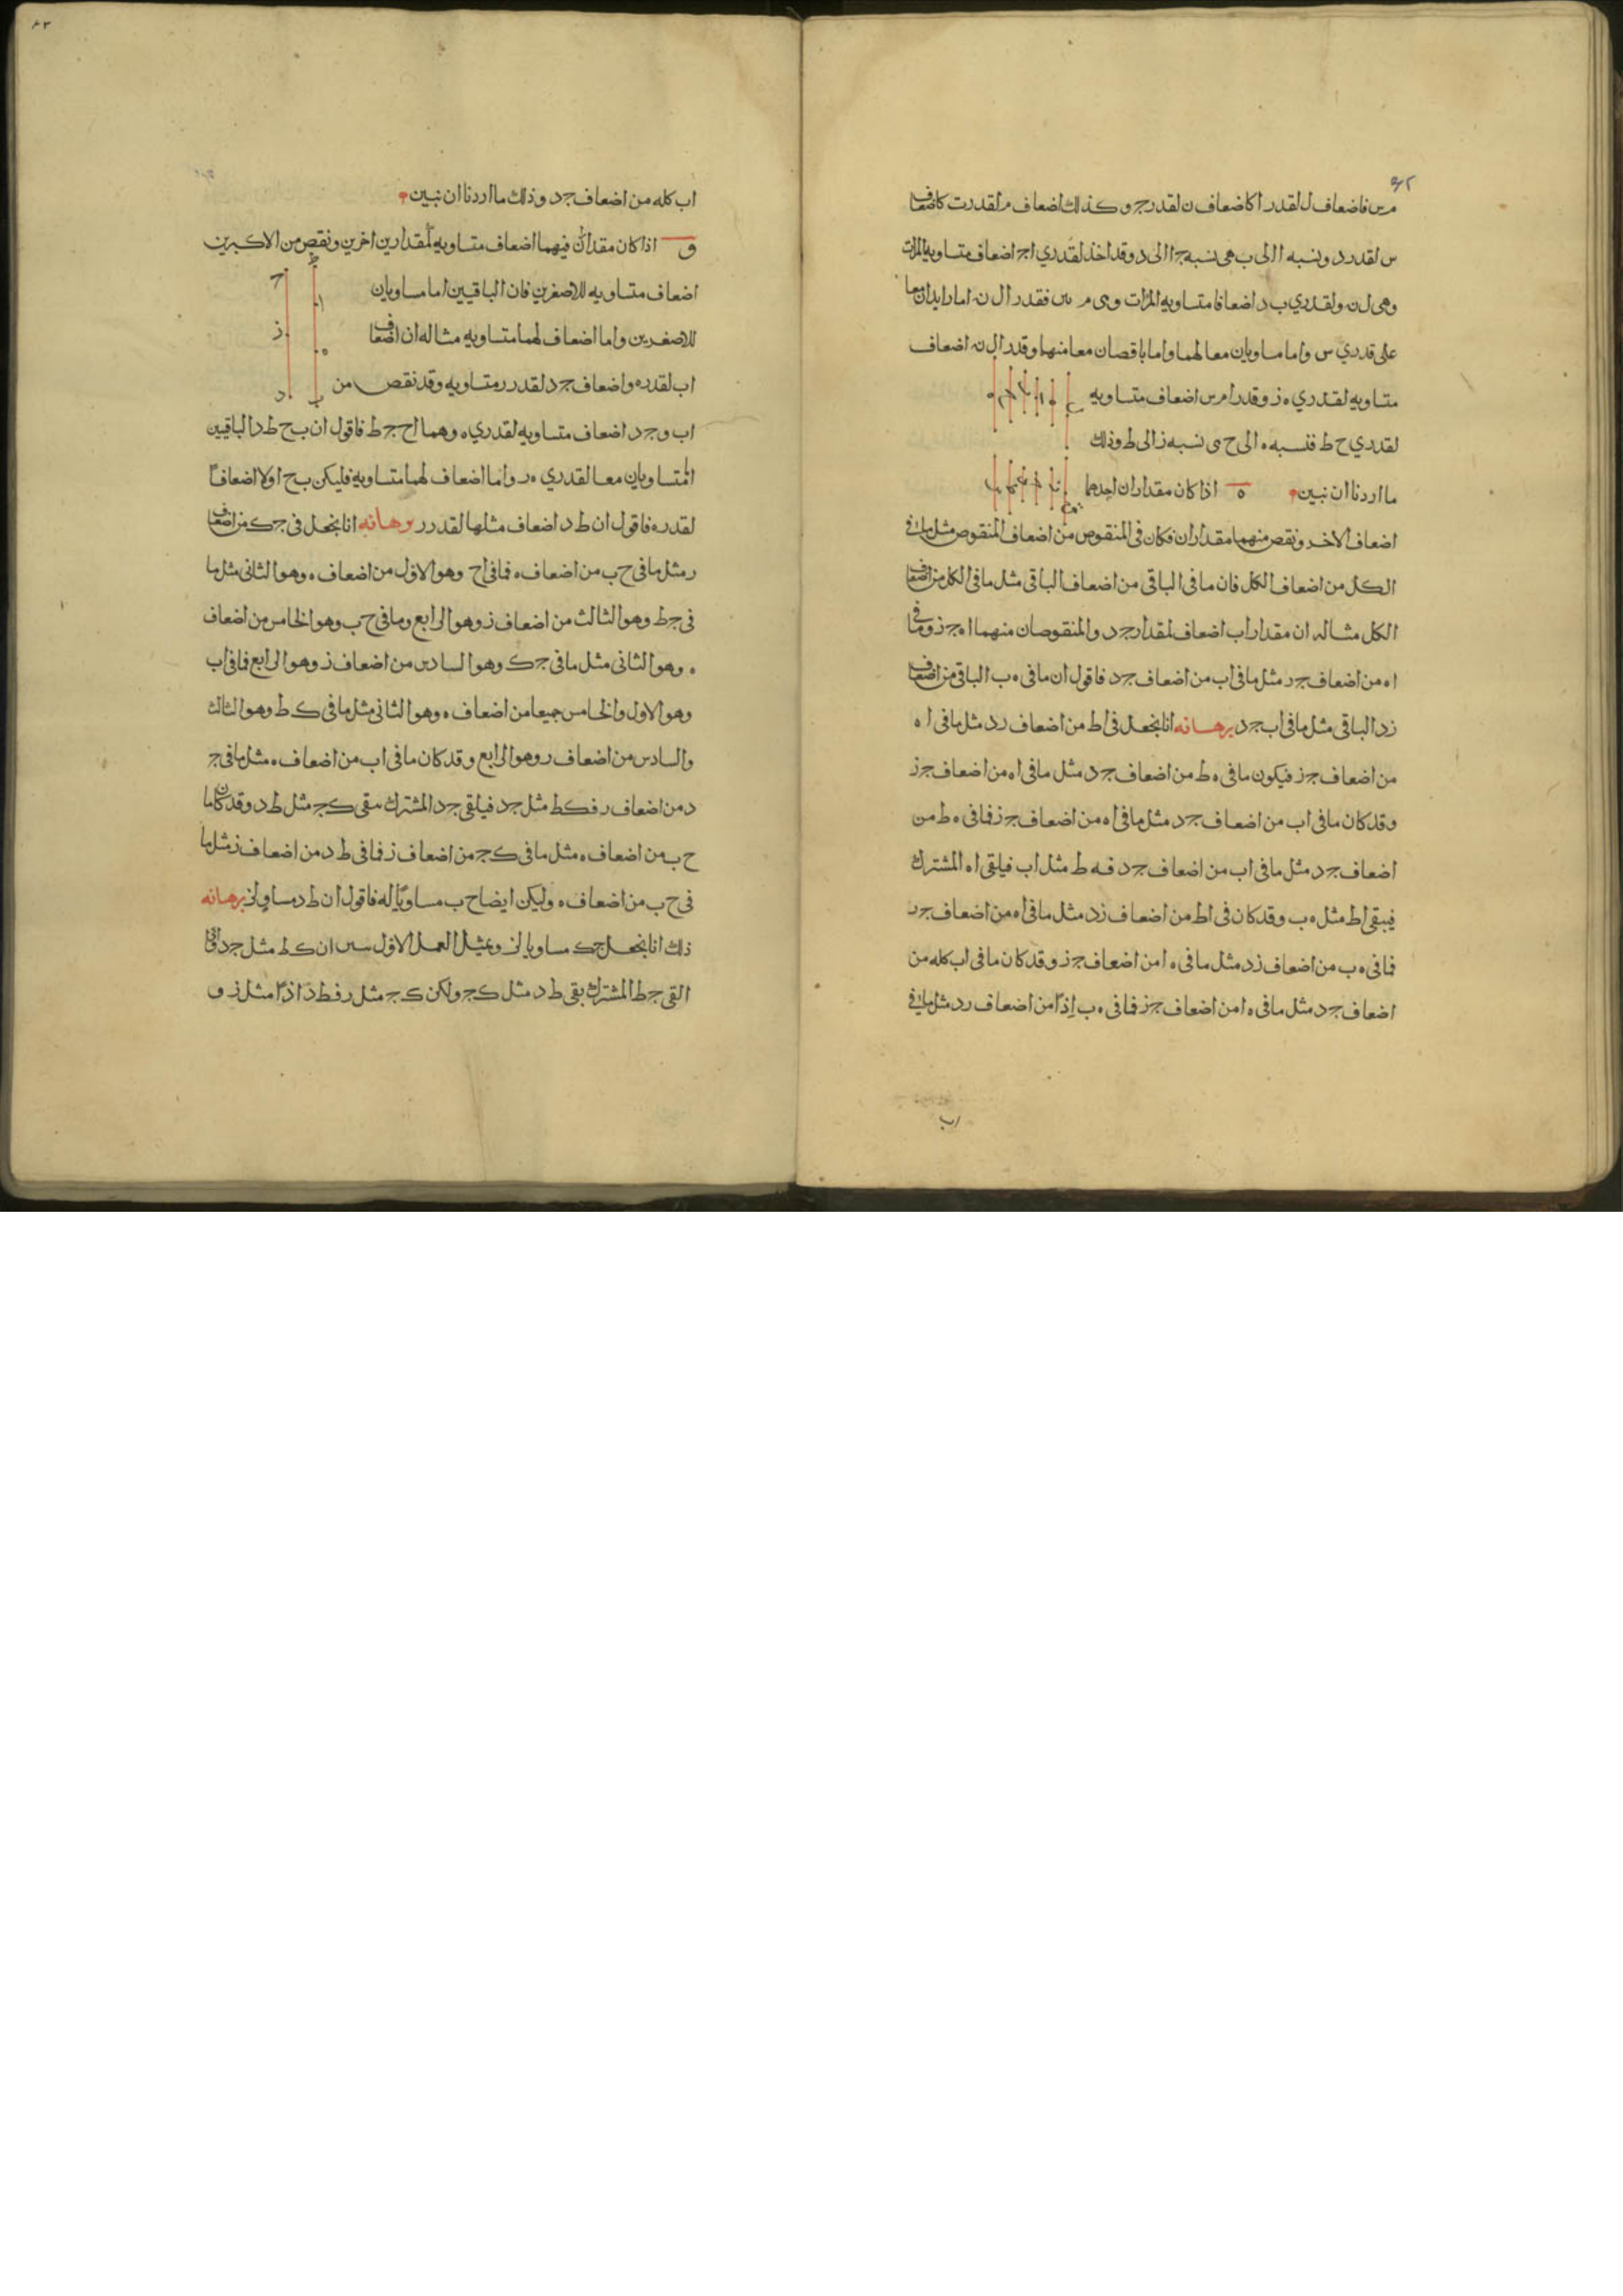 م س فاضعاف ل لقدر ا كاضعاف ن لقدر ج و كذلك اضعاف م لقدر ب كاضعاف
س لقدر د ونسبه ا الى ب هى نسبه ج ا الى د وقد اخذ لقدري ا ج اضعاف متساويه المرات
وهى ل ن ولقدري ب د اضعافا متساويه المرات وهى م س فقدر ال ن اما زايدان معا
على قدري س واما مساويان معا لهما واما ناقصان معا منهما وقدر ال ن اضعاف
متساويه لقدري ه ز وقدرا م س اضعاف متساويه
لقدري ح ط فنسبه ه الى ح هى نسبه ز الى ط وذلك
ما اردنا ان نبين ه اذا كان مقداران احدهما
اضعاف الاخر ونقص منهما مقداران فكان فى المنقوص من اضعاف المنقوص مثل ما فى
الكل من اضعاف الكل فان ما فى الباقى من اضعاف الباقى مثل ما فى الكل من اضعاف
الكل مثاله ان مقدار اب اضعاف لمقدار ج د والمنقوصان منهما ا ه ج ز وما فى
ا ه من اضعاف ج ر مثل ما فى اب من اضعاف ج د فاقول ان ما فى ه ب الباقى من اضعاف
زد الباقى مثل ما فى اب ج د برهانه انا نجعل فى اط من اضعاف رد مثل ما فى ا ه
من اضعاف ج ز فيكون ما فى ه ط من اضعاف ج د مثل ما فى اه من اضعاف ج ز
وقد كان ما فى اب من اضعاف ج د مثل ما فى اه من اضعاف ج ز فما فى ه ط من
اضعاف ج د مثل ما فى اب من اضعاف ج د فه ط مثل اب فيلقى اه المشترك
فيبقى اط مثل ه ب وقد كان فى اط من اضعاف زد مثل ما فى اه من اضعاف ج ر
فما فى ه ب من اضعاف زد مثل ما فى ه ا من اضعاف ج ز وقد كان ما فى اب كله من
اضعاف ج د مثل ما فى ه ا من اضعاف ج ز فما فى ه ب اذًا من اضعاف رد مثل ما فى
اب
اب كله من اضعاف ج د وذلك ما اردنا ان نبين
و اذا كان مقداران فيهما اضعاف متساويه لمقدارين اخرين ونقص من الاكبرين
اضعاف متساويه للاصغرين فان الباقيين اما مساويان
للاصغرين واما اضعاف لهما متساويه مثاله ان اضعاف
اب لقدر ه واضعاف ج د لقدر ر متساويه وقد نقص من
اب و ج د اضعاف متساويه لقدري ه وهما اح ج ط فاقول ان ب ح ط د الباقيين
المتساويان معا لقدري ه ر واما اضعاف لهما متساويه فليكن ب ح اولا اضعافا
لقدر ه فاقول ان ط د اضعاف مثلها لقدر ر برهانه انا نجعل فى ج ك من اضعاف
ر مثل ما فى ح ب من اضعاف ه فما فى اح وهو الاول من اضعاف ه وهو الثانى مثل ما
فى ج ط وهو الثالث من اضعاف ز وهو الرابع وما فى ح ب وهو الخامس من اضعاف
ه وهو الثانى مثل ما فى ج ك وهو السادس من اضعاف ز وهو الرابع فما فى اب
وهو الاول والخامس جميعا من اضعاف ه وهو الثانى مثل ما فى ك ط وهو الثالث
والسادس من اضعاف ر وهو الرابع وقد كان ما فى اب من اضعاف ه مثل ما فى ج
د من اضعاف ر فك ط مثل ج د فيلقى ج د المشترك يبقى ك ج مثل ط د وقد كان ما
ح ب من اضعاف ه مثل ما فى ك ج من اضعاف ز فما فى ط د من اضعاف ز مثل ما
فى ح ب من اضعاف ه وليكن ايضا ح ب مساويًا له فاقول ان ط د مساو لز برهانه
ذلك انا نجعل ج ك مساويا لز وبمثل العمل الاول نبين ان ك ط مثل ج د فاذا
القى ج ط المشترك بقى ط د مثل ك ج ولكن ك ج مثل ر فط د اذًا مثل ز و